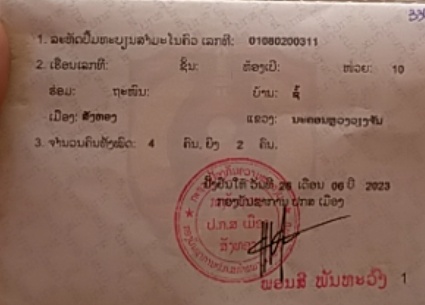 1. ລະຫັດປຶ້ມທະບຽນສຳມະໂນຄົວ ເລກທີ: 01080200311
2. ເຮືອນເລກທີ: ຊັ້ນ: ຫ້ອງເບີ: ໜ່ວຍ: 10
ຮ່ອມ: ຖະໜົນ: ບ້ານ:
ເມືອງ: ສັງທອງ ແຂວງ: ນະຄອນຫຼວງວຽງຈັນ
3. ຈຳນວນຄົນທັງໝົດ: 4 ຄົນ, ຍິງ 2 ຄົນ.
ປັ້ງປຶ້ມໃຫ້ ວັນທີ 26 ເດືອນ 06 ປີ 2023
ກອງບັນຊາການ ປກສ ເມືອງ
ປ.ກ.ສ ເມືອງ
ສັງທອງ
ພອນສີ ພັນທະວົງ 1